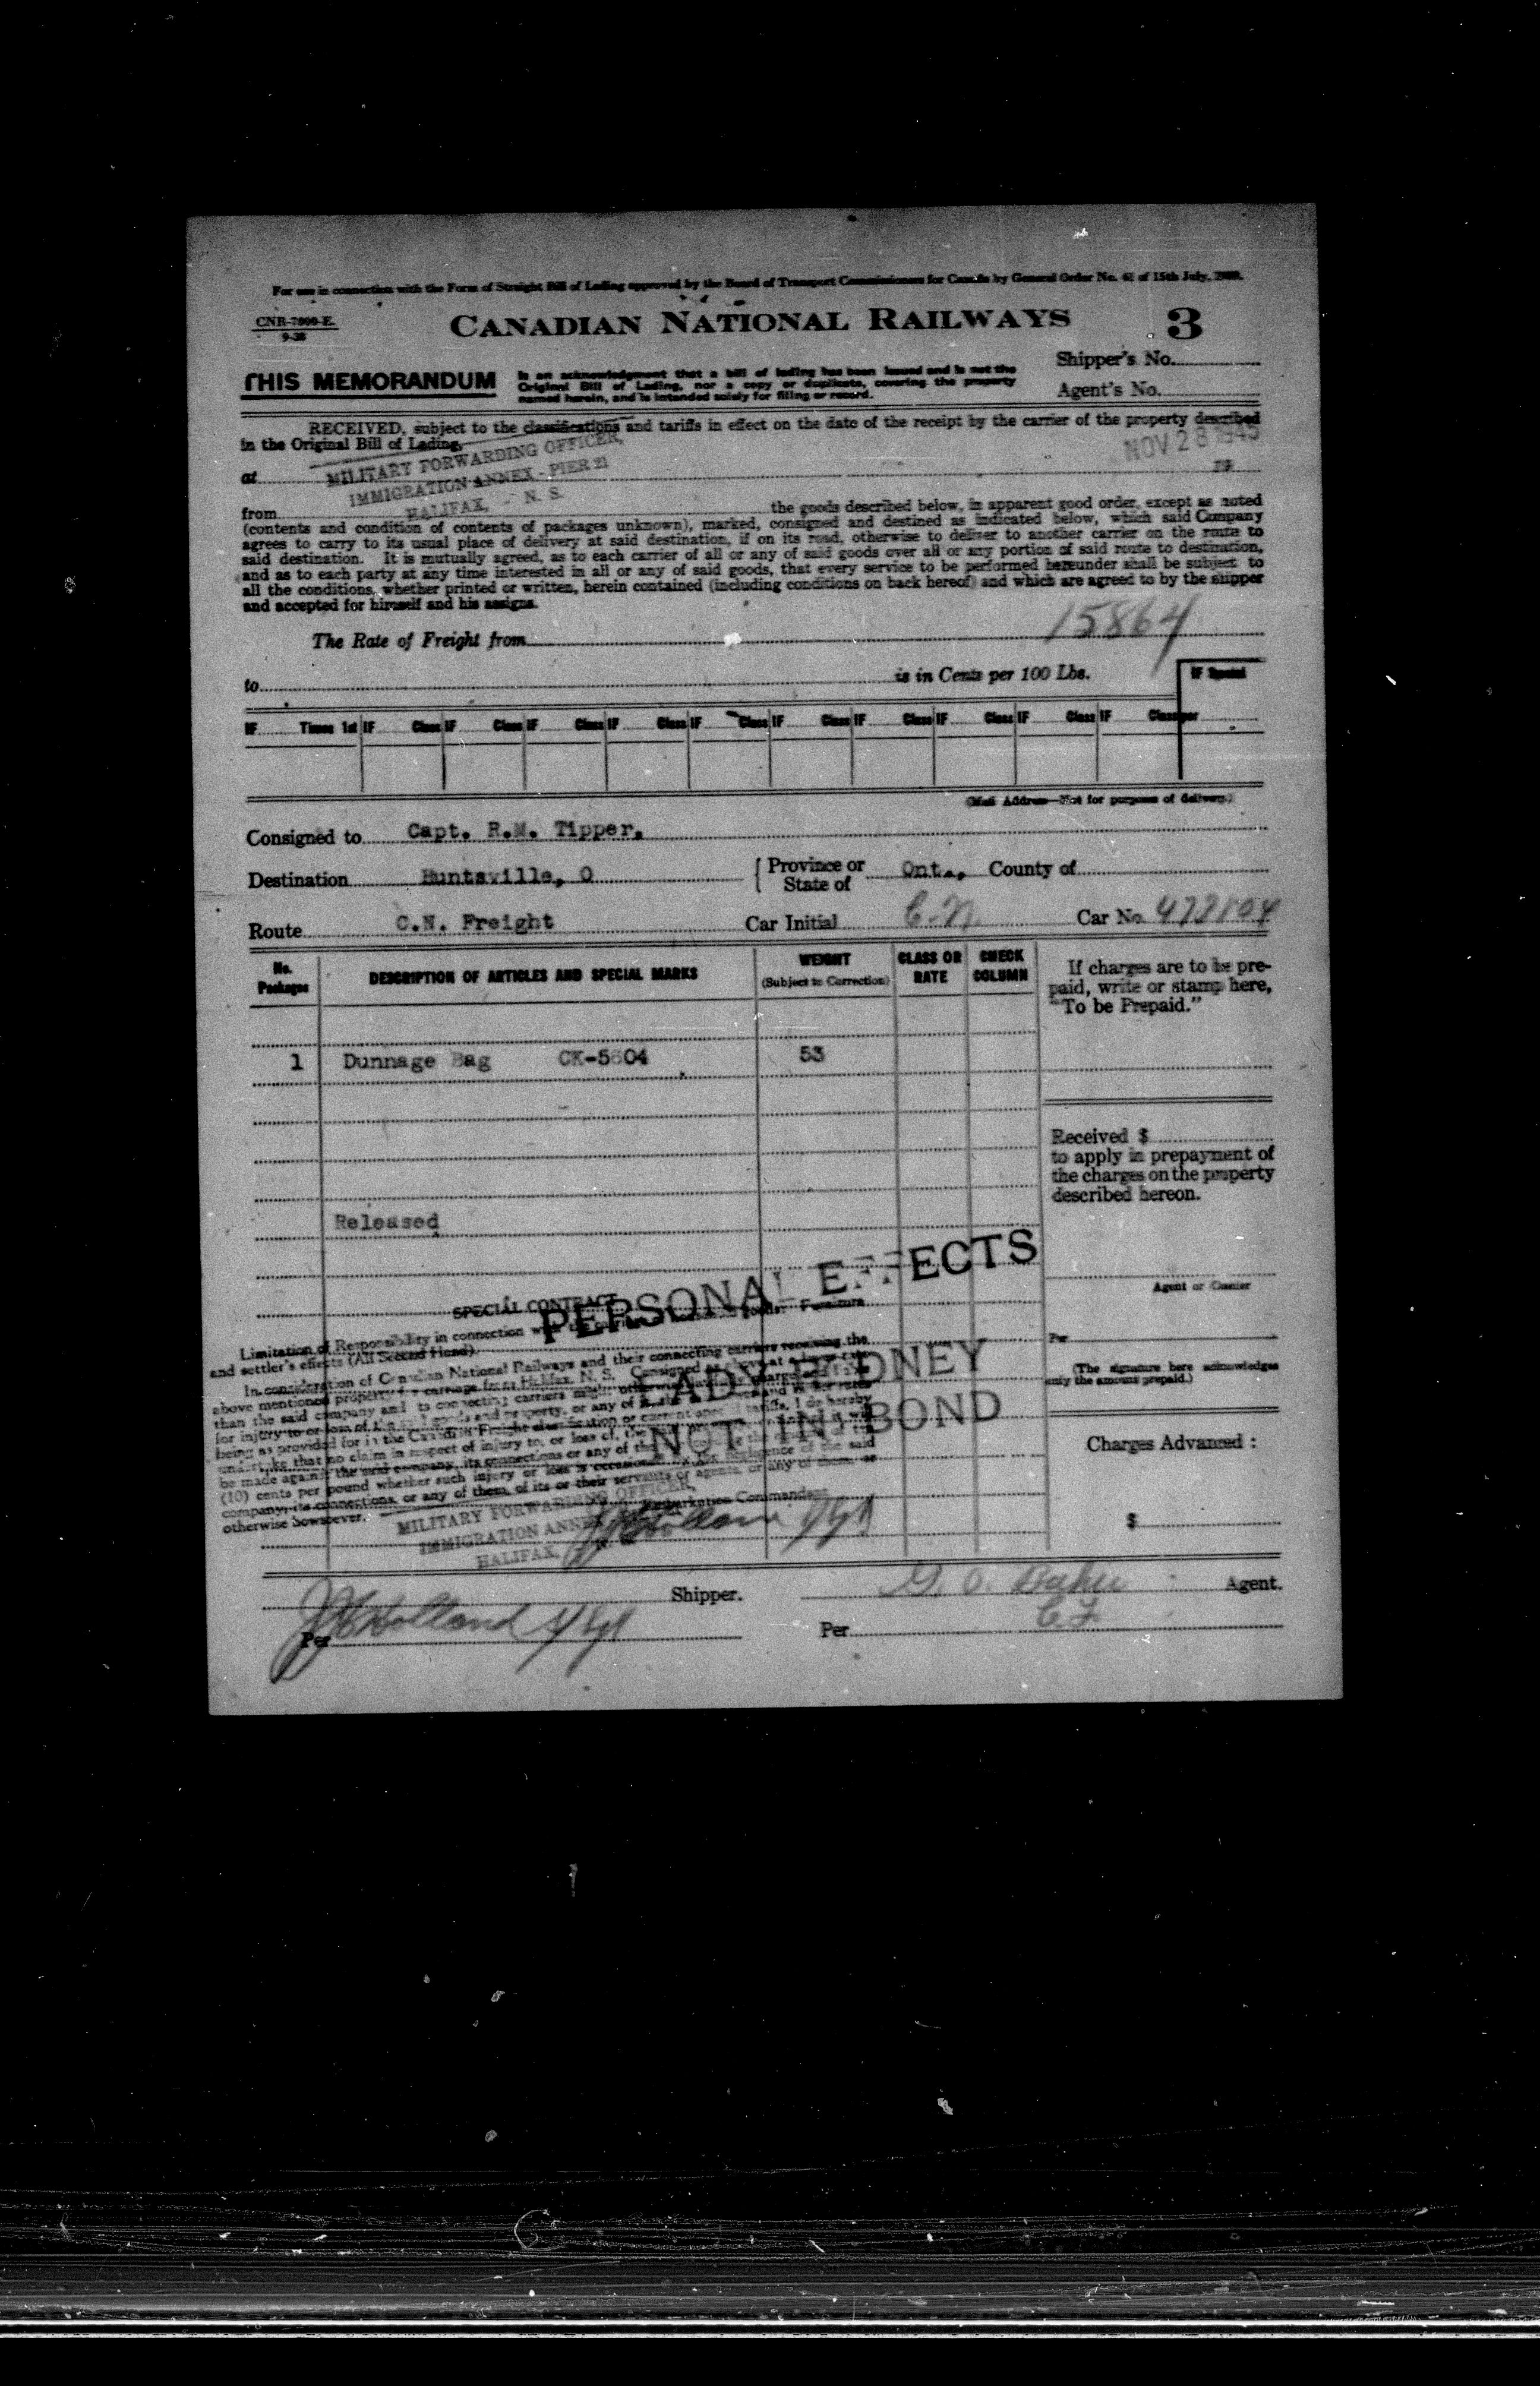 For use in connection with the Form of Straight Bill of Lading approved by the Board of Transport Commissioners for Canada by General Order No. of 15th July,
CNR-7000-E.
9-38
CANADIAN NATIONAL RAILWAYS 3
Shipper's No.
THIS MEMORANDUM
is an acknowledgment that a bill of lading has been issued and is not the
Original Bill of Lading, nor a copy or duplicate, covering the property
named herein, and is intended solely for filing or record.
Agent's No.
RECEIVED, subject to the classifications and tariffs in effect on the date of the receipt by the carrier of the property described
in the Original Bill of Lading,
NOV 28 1945
at MILITARY FORWARDING OFFICER, 19
IMMIGRATION ANNEX - PIER 21
HALIFAX, - N. S.
from the goods described below, in apparent good order, except as noted
(contents and condition of contents of packages unknown), marked, consigned and destined as indicated below, which said Company
agrees to carry to its usual place of delivery at said destination, if on its road, otherwise to deliver to another carrier on the route to
said destination. It is mutually agreed, as to each carrier of all or any of said goods over all or any portion of said route to destination,
and as to each party at any time interested in all or any of said goods, that every service to be performed hereunder shall be subject to
all the conditions, whether printed or written, herein contained (including conditions on back hereof) and which are agreed to by the shipper
and accepted for himself and his assigns.
15864
The Rate of Freight from
to is in Cents per 100 Lbs.
IF Special
IF Times 1st IF Class IF Class IF Class IF Class IF Class IF Class IF Class IF Class IF Class IF Class per
(Mail Address—Not for purposes of delivery.)
Consigned to Capt. R.M. Tipper.
Destination Huntsville, O Province or State of Ont., County of
Route C.N. Freight Car Initial C.N. Car No.
No. Packages DESCRIPTION OF ARTICLES AND SPECIAL MARKS WEIGHT (Subject to Correction) CLASS OR RATE CHECK COLUMN
If charges are to be pre-
paid, write or stamp here,
"To be Prepaid."
1 Dunnage Bag CK-5604 53
Received $
to apply in prepayment of
the charges on the property
described hereon.
Released
PERSONAL EFFECTS
Agent or Cashier
SPECIAL CONTRACT
Limitation of Responsibility in connection with the carriage goods: Furniture
and settler's effects (All Second Hand).
Per
LADY RODNEY
NOT IN BOND
(The signature here acknowledges
only the amount prepaid.)
In consideration of Canadian National Railways and their connecting carriers receiving the
above mentioned property for carriage from Halifax, N. S. Consigned as above at
than the said company and its connecting carriers might otherwise charge
for injury to or loss of the said goods and property, or any of
being as provided for in the Canadian Freight classification or current tariffs, I do hereby
undertake that no claim in respect of injury to, or loss of, the
be made against the said company, its connections or any of the
(10) cents per pound whether such injury or loss is occasioned negligence of the said
company, its connections, or any of them, of its or their servants or agents, or any of them, or
otherwise howsoever.
Charges Advanced :
Embarkation Commandant
MILITARY FORWARDING OFFICER,
IMMIGRATION ANNEX
HALIFAX,
$
Shipper. Agent.
Per J Holland S/Sgt Per C.F.